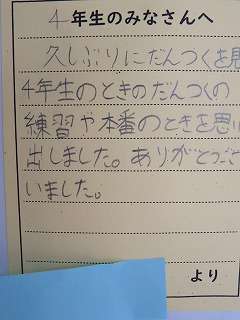 4年生のみなさんへ
久しぶりにだんつくを見
4年生のときのだんつくの
練習や本番のときを思い
出しました。ありがとうござ
いました。
より